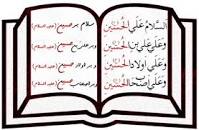 السَّلامُ عَلَى الْحُسَيْن
وَعَلَى عَلِيِّ بْنِ الْحُسَيْن
وَعَلَى أَوْلادِ الْحُسَيْن
وَعَلَى أَصْحابِ الْحُسَيْن
سلام بر حسین (علیه السلام)
و بر علی بن حسین (علیه السلام)
و بر اولاد حسین (علیه السلام)
و بر اصحاب حسین (علیه السلام)